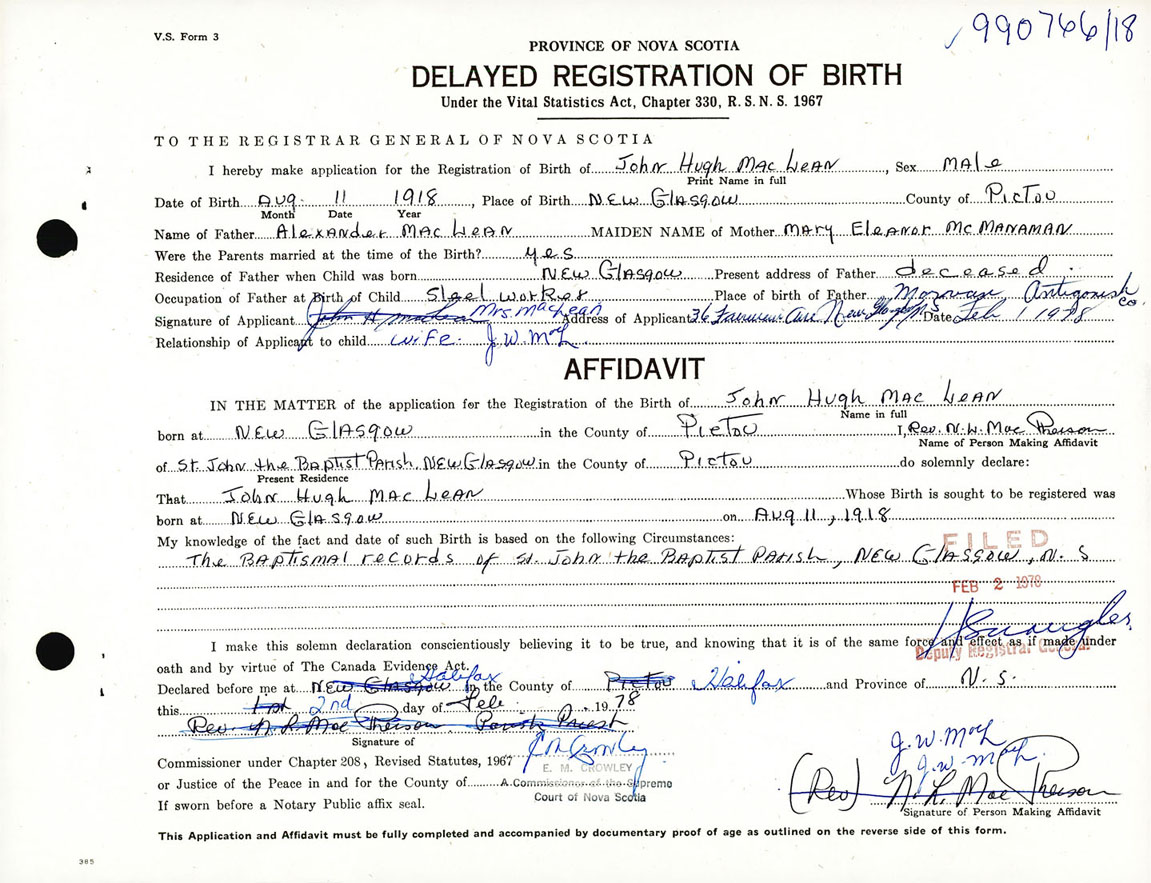 V.S. Form 3
990766/18
PROVINCE OF NOVA SCOTIA
DELAYED REGISTRATION OF BIRTH
Under the Vital Statistics Act, Chapter 330, R.S.N.S. 1967
TO THE REGISTRAR GENERAL OF NOVA SCOTIA
I hereby make application for the Registration of Birth of John Hugh Mac Lean, Sex Male
Print Name in full
Date of Birth Aug. 11 1918, Place of Birth New Glasgow County of Pictou
Month Date Year
Name of Father Alexander Mac Lean MAIDEN NAME of Mother Mary Eleanor McManaman
Were the Parents married at the time of the Birth? yes
Residence of Father when Child was born New Glasgow Present address of Father deceased.
Occupation of Father at Birth of Child Steel worker Place of birth of Father Antigonish Co.
Signature of Applicant John H. MacLean Mrs. MacLean Address of Applicant 36 Fairview Ave New Glasgow N S Date Feb 1 1978
Relationship of Applicant to child wife. J.W. McL
AFFIDAVIT
IN THE MATTER of the application for the Registration of the Birth of John Hugh Mac Lean
Name in full
born at New Glasgow in the County of Pictou I, Rev. N.L. MacPherson
Name of Person Making Affidavit
of St John the Baptist Parish, New Glasgow in the County of Pictou do solemnly declare:
Present Residence
That John Hugh Mac Lean Whose Birth is sought to be registered was
born at New Glasgow on Aug 11, 1918
My knowledge of the fact and date of such Birth is based on the following Circumstances:
The Baptismal records of St. John the Baptist Parish, New Glasgow, N.S
FILED
FEB 2 1978
I make this solemn declaration conscientiously believing it to be true, and knowing that it is of the same force and effect as if made under
Deputy Registrar General
oath and by virtue of The Canada Evidence Act.
Declared before me at New Glasgow Halifax in the County of Pictou Halifax and Province of N.S.
this 1st 2nd day of Feb. 1978
Rev. N. L. MacPherson Parish Priest
Signature of
J.W. McL
Commissioner under Chapter 208, Revised Statutes, 1967 E M Crowley
J.W. McL
E. M. CROWLEY
or Justice of the Peace in and for the County of A Commissioner of the Supreme
(Rev) N. L. MacPherson
If sworn before a Notary Public affix seal. Court of Nova Scotia
Signature of Person Making Affidavit
This Application and Affidavit must be fully completed and accompanied by documentary proof of age as outlined on the reverse side of this form.
385